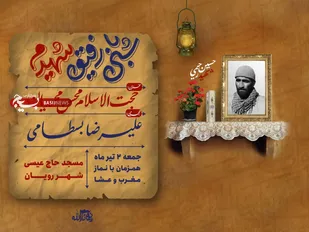 شبی با رفیق شهیدم
حجت الاسلام محسن
BASIJNEWS
علیرضا بسطامی
جمعه ۲ تیر ماه
همزمان با نماز
مغرب و عشا
مسجد حاج عیسی
شهر رویان